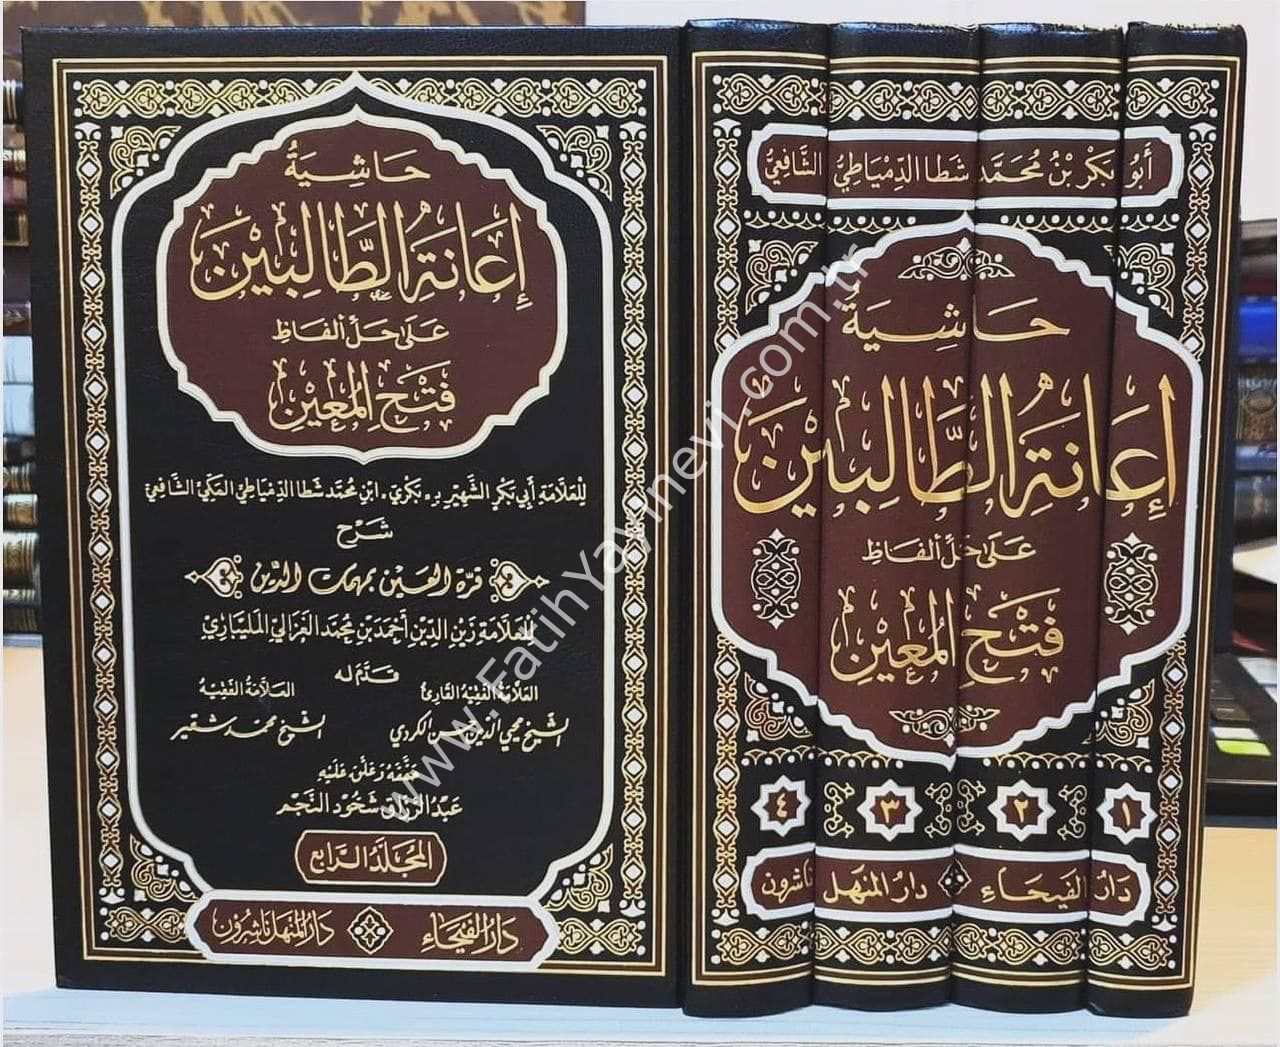 حَاشِيَةُ
إِعَانَةِ الطَّالِبِيْنَ
عَلَى حَلّ أَلفَاظِ
فَتْحِ المُعِيْنِ
لِلعَلَّامَة أَبِي بَكْرٍ الشَّهِيْرِ بِـ «بَكْرِي» ابْنِ مُحَمَّد شَطَا الدِّمْيَاطِيّ المَكِّيّ الشَّافِعِيّ
شَرْحُ
قرّة العين بمهمات الدّين
لِلعَلَّامَة زَيْنِ الدِّيْنِ أَحْمَدَ بْنِ مُحَمَّد الغَزَالِيّ المَلِيْبَارِيّ
قَدَّمَ لَه
العَلَّامَةُ الفَقِيْهُ القَارِئُ العَلَّامَةُ الفَقِيْهُ
الشيخ محيي الدين حسن الكردي الشيخ محمد شقير
حَقَّقَهُ وَعَلَّقَ عَلَيْهِ
عَبْدُ الرَّزَّاقِ شَحُود النَّجْم
المُجَلَّدُ الرَّابِع
دَارُ الفَيْحَاء دَارُ المَنْهَل نَاشِرُوْن
أَبُو بَكْر بْنُ مُحَمَّد شَطَا الدِّمْيَاطِيُّ الشَّافِعِيُّ
حَاشِيَةُ
إِعَانَةِ الطَّالِبِيْنَ
عَلَى حَلّ أَلفَاظِ
فَتْحِ المُعِيْنِ
١ ٢ ٣ ٤
دَارُ الفَيحَاء دَارُ المَنهَل نَاشرون
www.FatihYayinevi.com.tr